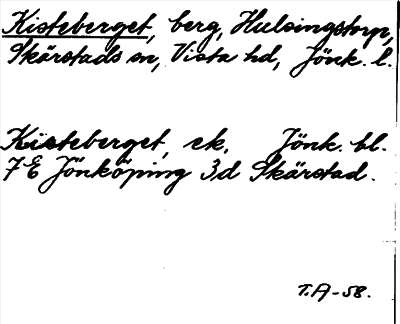 Kisteberget, berg, Hulsingstorp,
Skärstads sn, Vista hd, Jönk. l.
Kisteberget, ek. Jönk. bl.
7 E Jönköping 3d Skärstad.
T.A-58.